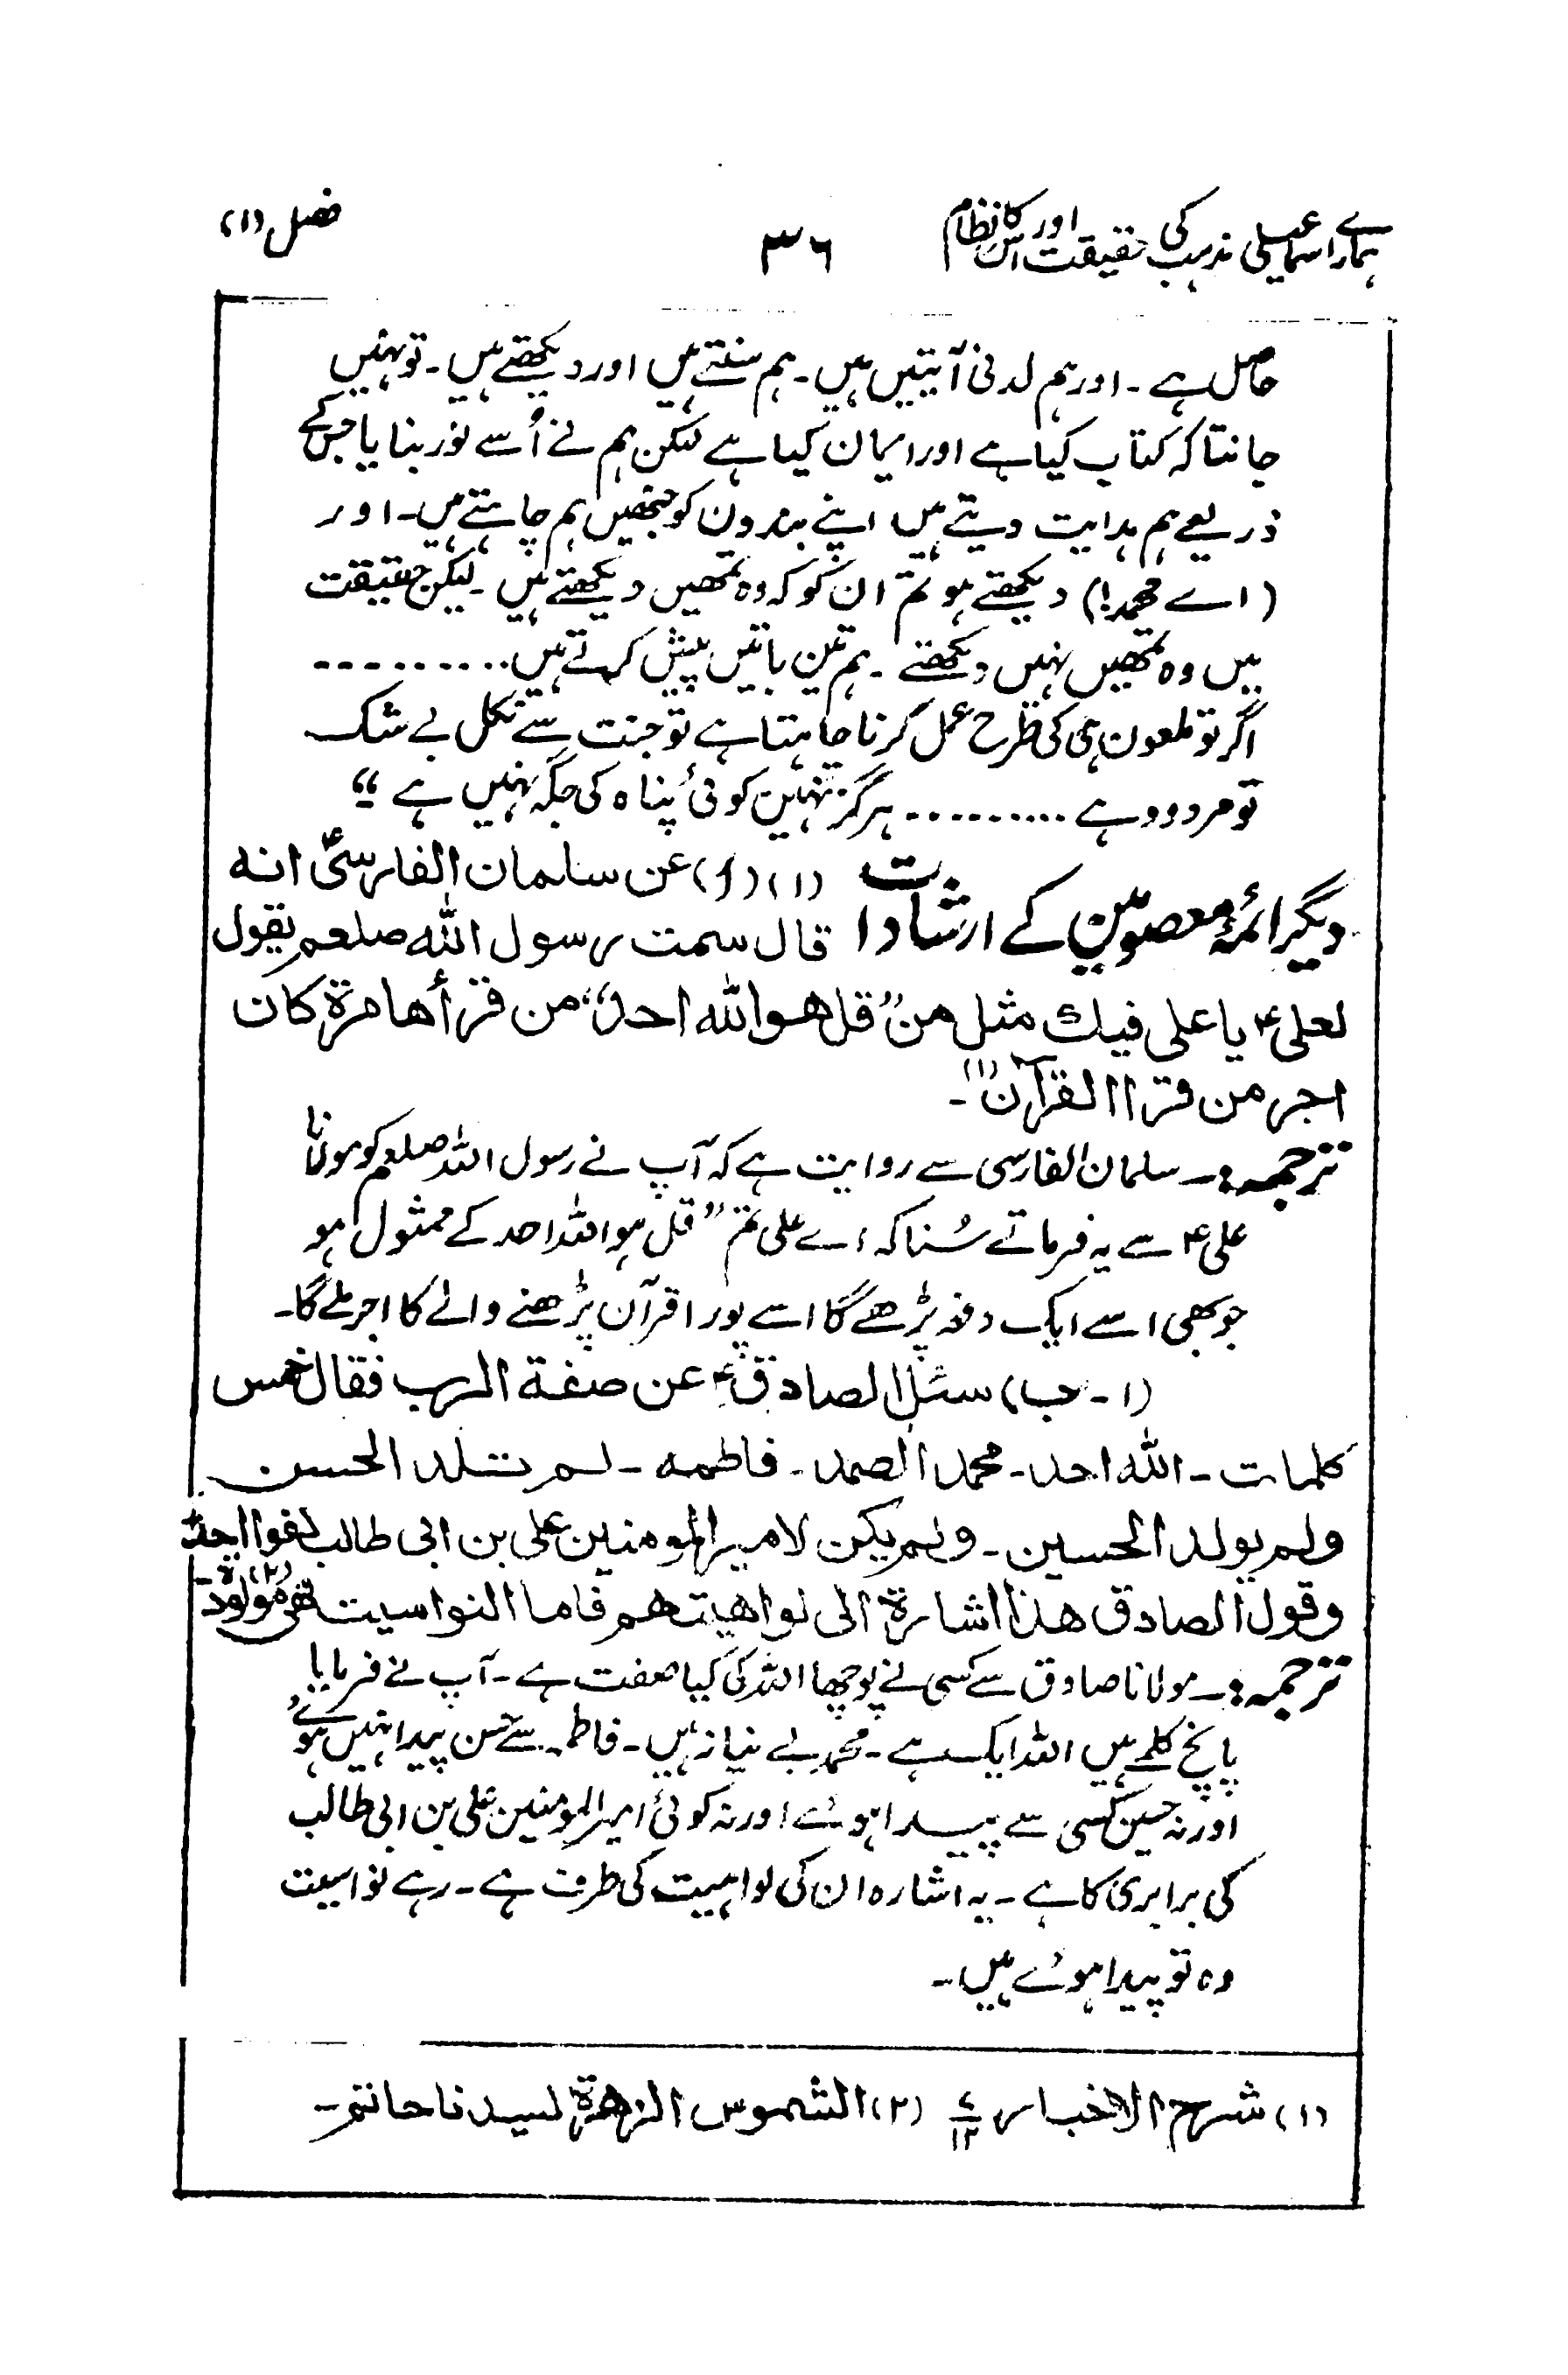 ہمارے اسماعیلی مذہب کی حقیقت اور اس کا نظام ۳۶ فصل (۱)
حاصل ہے ۔ اور ہم لدنی آیتیں ہیں ۔ ہم سنتے ہیں اور دیکھتے ہیں ۔ تو نہیں
جانتا کہ کتاب کیا ہے اور ایمان کیا ہے لیکن ہم نے اُسے نور بنایا جس کے
ذریعے ہم ہدایت دیتے ہیں اپنے بندون کو جنھیں ہم چاہتے ہیں ۔ اور
(اے محمد!) دیکھتے ہو تم ان کو کہ وہ تمھیں دیکھتے ہیں ۔ لیکن حقیقت
میں وہ تمھیں نہیں دیکھتے ۔ ہم تین باتیں پیش کرتے ہیں ..........
اگر تو ملعون ہی کی طرح عمل کرنا چاہتا ہے تو جنت سے نکل بے شک
تو مردود ہے .......... ہرگز نہیں کوئی پناہ کی جگہ نہیں ہے ‘‘
دیگر ائمۂ معصومین کے ارشادات (۱) (أ) عن سلمان الفارسیؓ انه
قال سمت رسول الله صلعم یقول
لعلی ؑ یا علی فیك مثل من ”قل هو الله احد“ من قرأها مرة کان
اجر من قرا القرآن (۱)۔
ترجمہ:۔ سلمان الفارسی سے روایت ہے کہ آپ نے رسول اللہ صلعم کو مولانا
علی ؑ سے یہ فرماتے سُنا کہ اے علی تم ”قل ہو اللہ احد کے ممثول ہو
جو بھی اسے ایک دفعہ پڑھے گا اسے پورا قرآن پڑھنے والے کا اجر ملے گا۔
(۱ ۔ ب) سئل الصادق ؑ عن صفة الرب فقال خمس
کلمات ۔ الله احد ۔ محمد الصمد ۔ فاطمه ۔ لم تلد الحسن
ولم یولد الحسین ۔ ولم یکن لامیر المومنین علی بن ابی طالب کفوا احد
وقول الصادق هذا اشارة الی لواهیتهم فاما النواسیت فهی مولودة (۲)۔
ترجمہ:۔ مولانا صادق سے کسی نے پوچھا اللہ کی کیا صفت ہے ۔ آپ نے فرمایا
پانچ کلمے ہیں اللہ ایک ہے ۔ محمد بے نیاز ہیں ۔ فاطمہ سے حسن پیدا نہیں ہوئے
اور نہ حسین کسی سے پیدا ہوئے اور نہ کوئی امیر المومنین علی بن ابی طالب
کی برابری کا ہے ۔ یہ اشارہ ان کی لواہیت کی طرف ہے ۔ رہے نواسیت
وہ تو پیدا ہوئے ہیں ۔
(۱) شرح الاخبار ۴/۱۲ (۲) الشموس الزهرة لسیدنا حاتم ۔